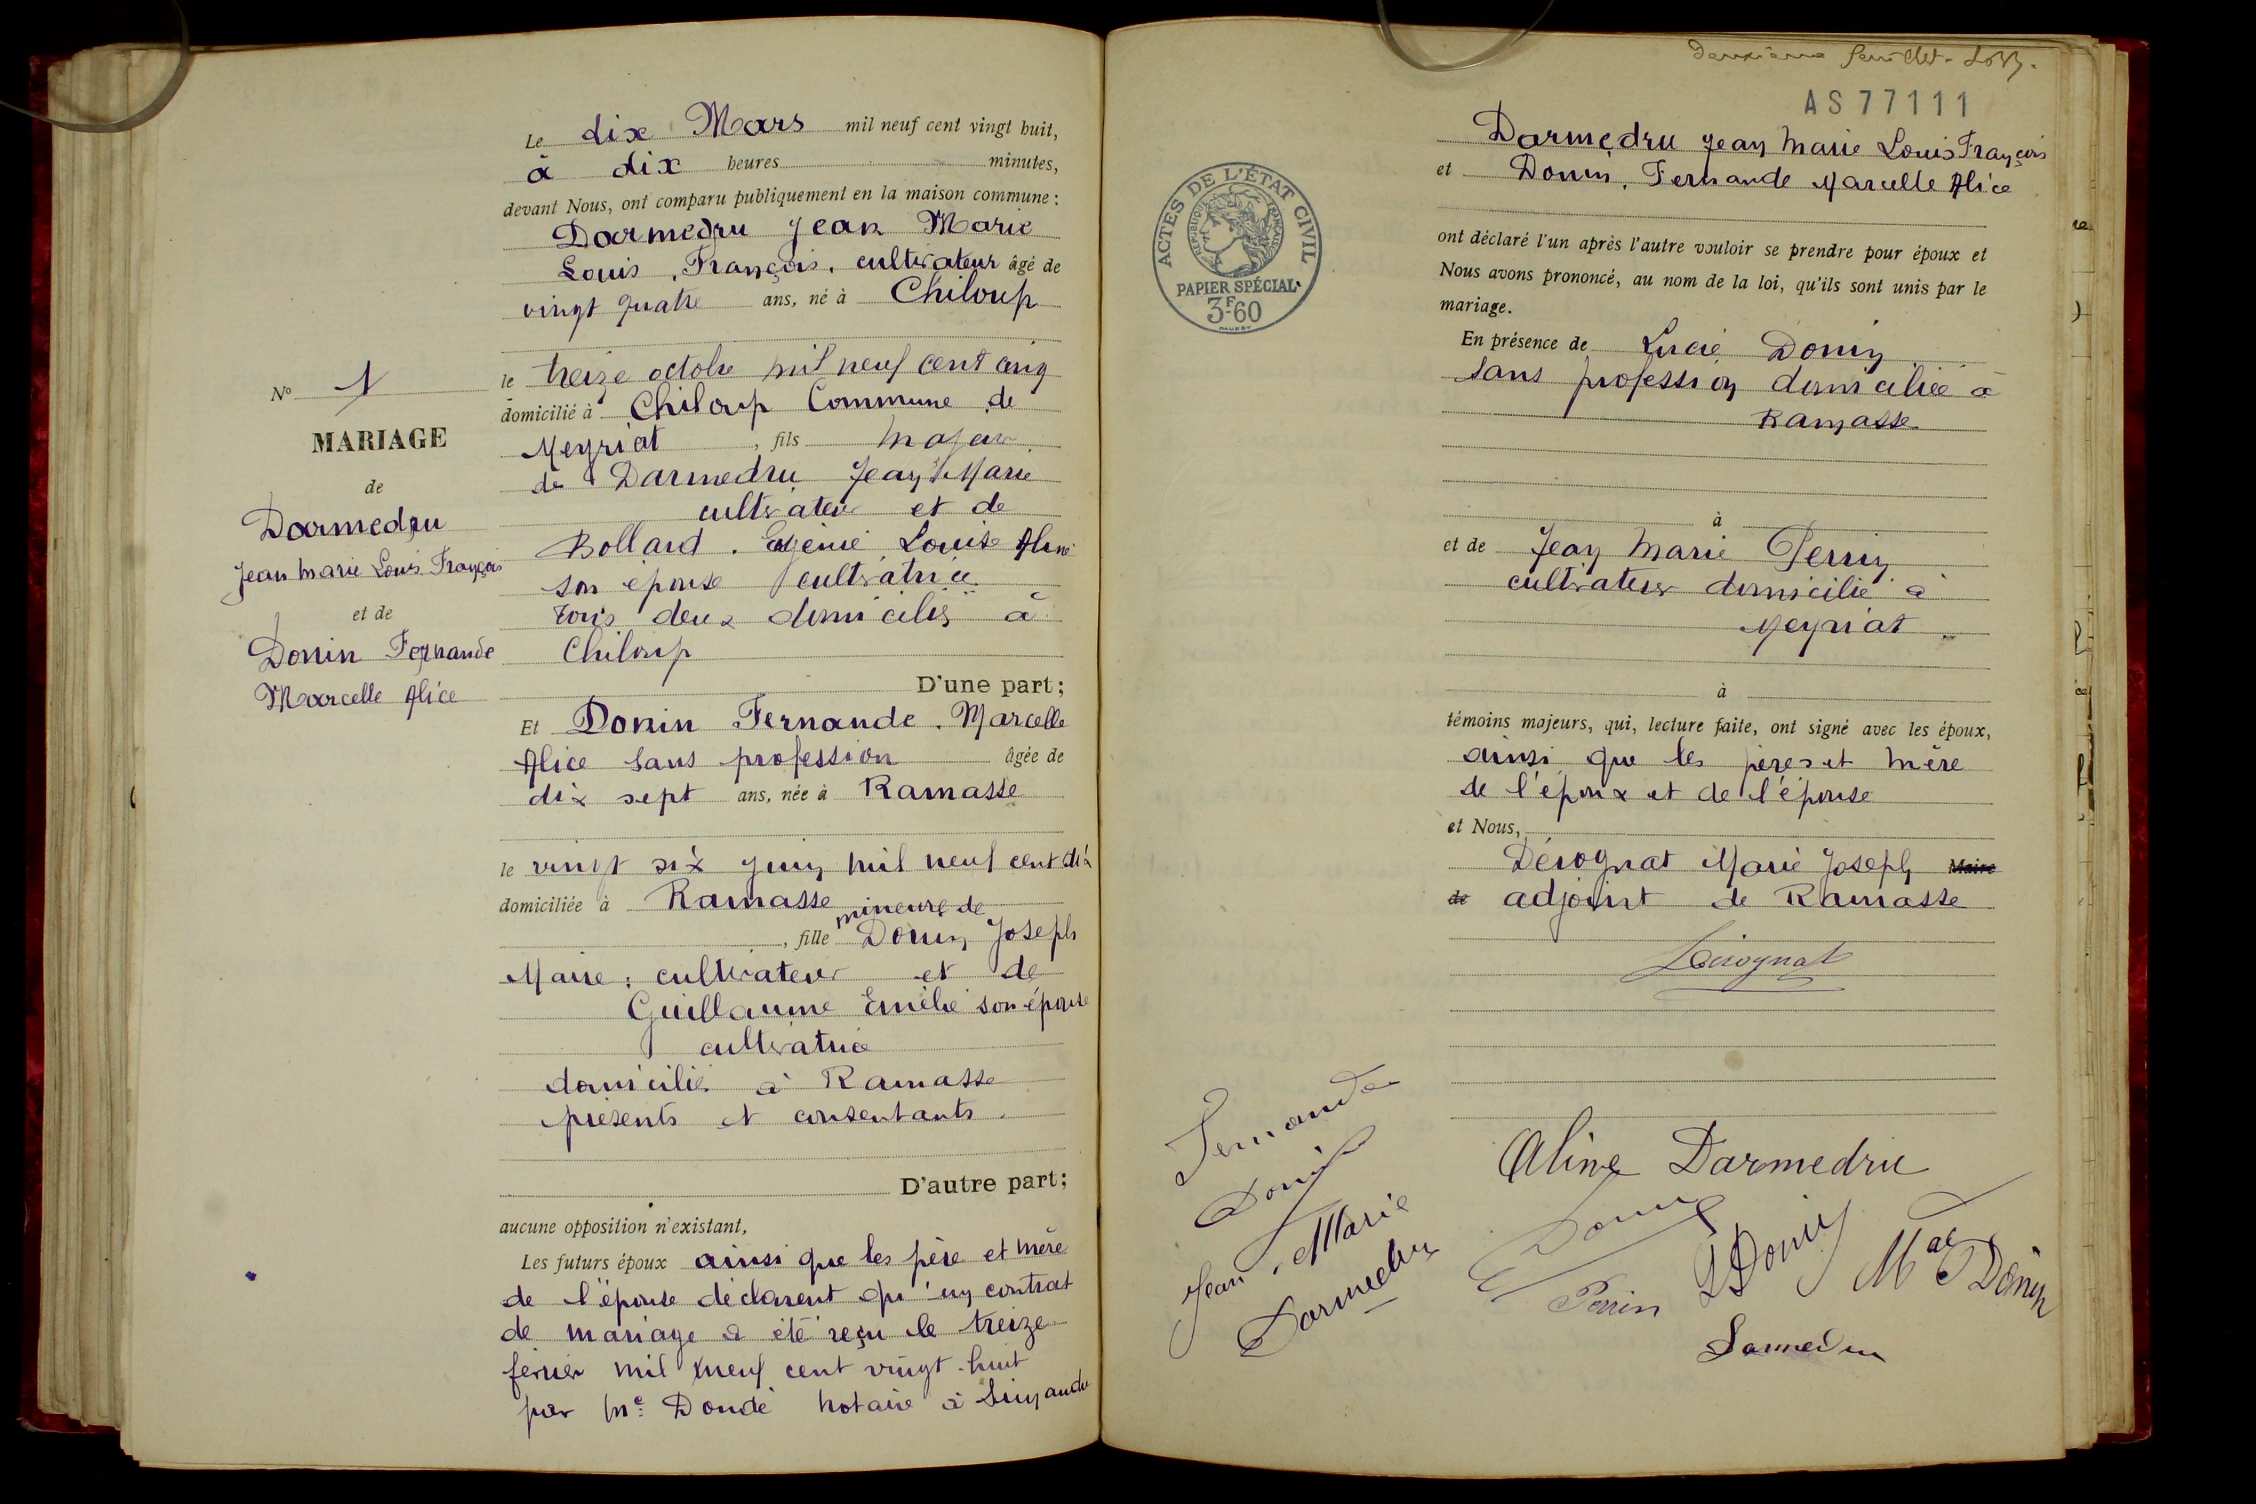 Le dix Mars mil neuf cent vingt huit,
à dix heures minutes,
devant Nous, ont comparu publiquement en la maison commune :
Darmedru Jean Marie
Louis, François, cultivateur âgé de
vingt quatre ans, né à Chiloup
le treize octobre mil neuf cent cinq
domicilié à Chiloup Commune de
Meyriat, fils majeur
de Darmedru Jean Marie
cultivateur et de
Bollard. Eugénie Louise Aline
son épouse cultivatrice
tous deux domiciliés à
Chiloup
D'une part ;
Et Donin Fernande. Marcelle
Alice sans profession âgée de
dix sept ans, née à Ramasse
le vingt six juin mil neuf cent dix
domiciliée à Ramasse
mineure de
, fille Donin Joseph
Marie, cultivateur et de
Guillaume Emélie son épouse
cultivatrice
domiciliés à Ramasse
présents et consentants.
D'autre part ;
aucune opposition n'existant,
Les futurs époux ainsi que les père et mère
de l'épouse déclarent qu'un contrat
de mariage a été reçu le treize
février mil neuf cent vingt-huit
par Me Doudé notaire à Simandre
No 1
MARIAGE
de
Darmedru
Jean Marie Louis François
et de
Donin Fernande
Marcelle Alice
Deuxième feuillet.
AS 77111
ACTES DE L'ÉTAT CIVIL
RÉPUBLIQUE FRANÇAISE
PAPIER SPÉCIAL
3F60
Darmedru Jean Marie Louis François
et Donin, Fernande Marcelle Alice
ont déclaré l'un après l'autre vouloir se prendre pour époux et
Nous avons prononcé, au nom de la loi, qu'ils sont unis par le
mariage.
En présence de Lucie Donin
sans profession domiciliée à
Ramasse
à
et de Jean Marie Perrin
cultivateur domicilié à
Meyriat
à
témoins majeurs, qui, lecture faite, ont signé avec les époux,
ainsi que les pères et mère
de l'époux et de l'épouse
et Nous,
Dérognat Marie Joseph Maire
de adjoint de Ramasse
Dérognat
Fernande
Donin
Jean. Marie
Darmedru
Aline Darmedru
Donin
Perrin
L Donin
Donin
Darmedru